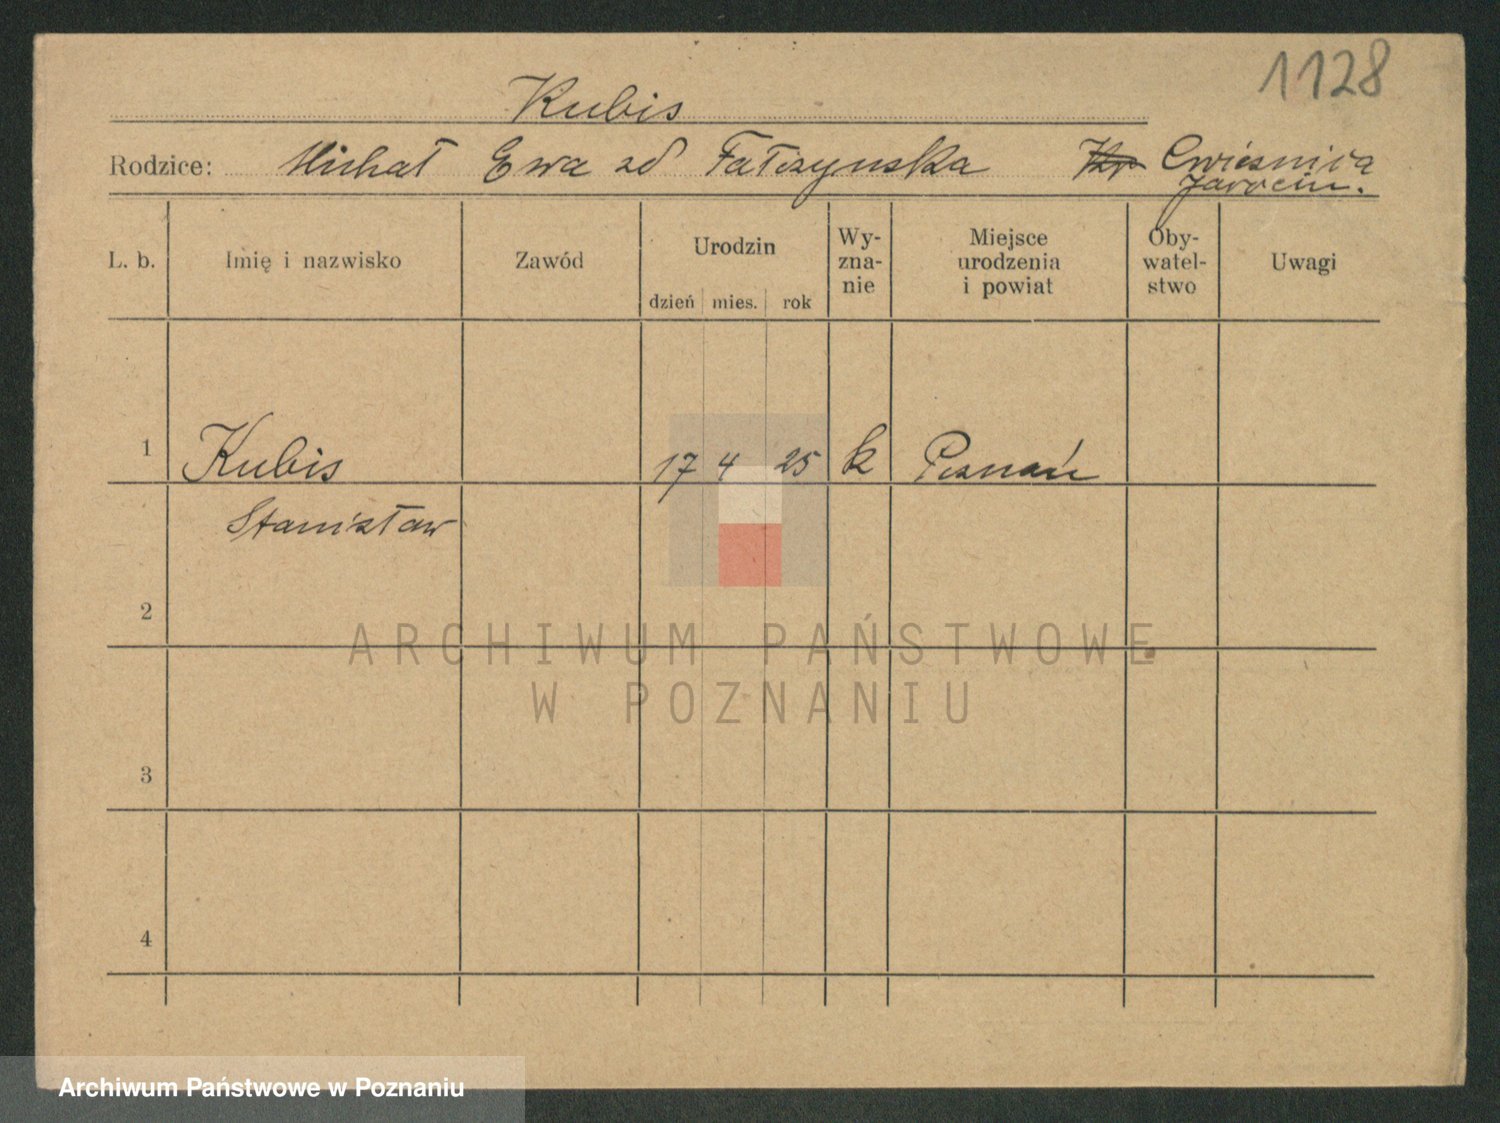 1128
Kubis
Rodzice: Michał Ewa zd Fałczynska Cwieśnica
Jarocin.
L. b. Imię i nazwisko Zawód Urodzin dzień mies. rok Wy-zna-nie Miejsce urodzenia i powiat Oby-watel-stwo Uwagi
1 Kubis 17 4 25 k Poznań
Stanisław
2
ARCHIWUM PAŃSTWOWE
W POZNANIU
3
4
Archiwum Państwowe w Poznaniu